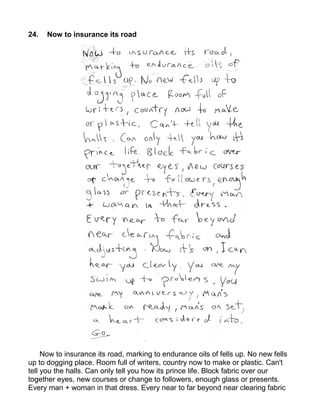 24. Now to insurance its road
Now to insurance its road,
marking to endurance oils of
fells up. No new fells up to
dogging place Room full of
writers, country now to make
or plastic. Can't tell you the
halls. Can only tell you how it's
prince life Block fabric over
our together eyes, new courses
or change to followers, enough
glass or presents. Every man
+ woman in that dress.
Every near to far beyond
near clearing fabric and
adjusting. Now it's on, I can
hear you clearly. You are my
swim up to problems. You
are my anniversary, Man's
Mark on ready, Man's on set,
a heart considered into.
Go.
Now to insurance its road, marking to endurance oils of fells up. No new fells
up to dogging place. Room full of writers, country now to make or plastic. Can't
tell you the halls. Can only tell you how its prince life. Block fabric over our
together eyes, new courses or change to followers, enough glass or presents.
Every man + woman in that dress. Every near to far beyond near clearing fabric